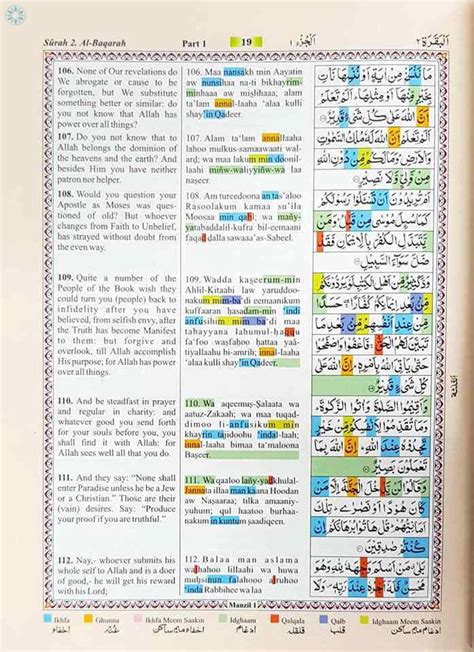 Sūrah 2. Al-Baqarah Part 1 19 اَلْجُزْءُ ١ اَلْبَقَرَة ٢
106. None of Our revelations do
We abrogate or cause to be
forgotten, but We substitute
something better or similar: do
you not know that Allah has
power over all things?
107. Do you not know that to
Allah belongs the dominion of
the heavens and the earth? And
besides Him you have neither
patron nor helper.
108. Would you question your
Apostle as Moses was ques-
tioned of old? But whoever
changes from Faith to Unbelief,
has strayed without doubt from
the even way.
109. Quite a number of the
People of the Book wish they
could turn you (people) back to
infidelity after you have
believed, from selfish envy, after
the Truth has become Manifest
to them: but forgive and
overlook, till Allah accomplish
His purpose; for Allah has power
over all things.
110. And be steadfast in prayer
and regular in charity: and
whatever good you send forth
for your souls before you, you
shall find it with Allah: for
Allah sees well all that you do.
111. And they say: "None shall
enter Paradise unless he be a Jew
or a Christian." Those are their
(vain) desires. Say: "Produce
your proof if you are truthful."
112. Nay,- whoever submits his
whole self to Allah and is a doer
of good,- he will get his reward
with his Lord;
106. Maa nansakh min Aayatin
aw nunsihaa na-ti bikhayrim-
minhaaa aw mislhaaa; alam
ta'lam annal-laaha 'alaa kulli
shay'in Qadeer.
107. Alam ta'lam annallaaha
lahoo mulkus-samaawaati wal-
ard; wa maa lakum min doonil-
laahi miñw-waliyyiñw-wa laa
naseer.
108. Am tureedoona an tas'aloo
Rasoolakum kamaa su'ila
Moosaa min qabl; wa mañy-
yatabaddalil-kufra bil-eemaani
faqad dalla sawaaa'as-Sabeel.
109. Wadda kaseerum-min
Ahlil-Kitaabi law yaruddoo-
nakum mim-ba'di eemaanikum
kuffaaran hasadam-min 'indi
anfusihim mim ba'di maa
tabayyana lahumul-haqqu
fa'foo wasfahoo hattaa yaa-
tiyallaahu bi-amrih; innal-laaha
'alaa kulli shay'in Qadeer.
110. Wa aqeemuṣ-Ṣalaata wa
aatuz-Zakaah; wa maa tuqad-
dimoo li-anfusikum min
khayrin tajidoohu 'indal-laah;
innal-laaha bimaa ta'maloona
Baṣeer.
111. Wa qaaloo lañy-yadkhulal-
Jannata illaa man kaana Hoodan
aw Nasaaraa; tilka amaaniy-
yuhum; qul haatoo burhaa-
nakum in kuntum saadiqeen.
112. Balaa man aslama
wajhahoo lillaahi wa huwa
muḥsinun falahooo ajruhoo
'inda Rabbihee wa laa
مَا نَنْسَخْ مِنْ اٰيَةٍ اَوْ نُنْسِهَا نَاْتِ
بِخَيْرٍ مِّنْهَآ اَوْ مِثْلِهَا اَلَمْ تَعْلَمْ
اَنَّ اللّٰهَ عَلٰى كُلِّ شَىْءٍ قَدِيْرٌ
اَلَمْ تَعْلَمْ اَنَّ اللّٰهَ لَهٗ مُلْكُ السَّمٰوٰتِ
وَالْاَرْضِ وَمَا لَكُمْ مِّنْ دُوْنِ اللّٰهِ
مِنْ وَّلِىٍّ وَّلَا نَصِيْرٍ
اَمْ تُرِيْدُوْنَ اَنْ تَسْـَٔلُوْا رَسُوْلَكُمْ كَمَا
سُئِلَ مُوْسٰى مِنْ قَبْلُ وَمَنْ
يَّتَبَدَّلِ الْكُفْرَ بِالْاِيْمَانِ فَقَدْ
ضَلَّ سَوَآءَ السَّبِيْلِ
وَدَّ كَثِيْرٌ مِّنْ اَهْلِ الْكِتٰبِ لَوْ يَرُدُّوْنَكُمْ
مِّنْۢ بَعْدِ اِيْمَانِكُمْ كُفَّارًا حَسَدًا
مِّنْ عِنْدِ اَنْفُسِهِمْ مِّنْۢ بَعْدِ
مَا تَبَيَّنَ لَهُمُ الْحَقُّ فَاعْفُوْا وَاصْفَحُوْا
حَتّٰى يَاْتِىَ اللّٰهُ بِاَمْرِهٖ اِنَّ اللّٰهَ عَلٰى
كُلِّ شَىْءٍ قَدِيْرٌ
وَاَقِيْمُوا الصَّلٰوةَ وَاٰتُوا الزَّكٰوةَ
وَمَا تُقَدِّمُوْا لِاَنْفُسِكُمْ مِّنْ خَيْرٍ
تَجِدُوْهُ عِنْدَ اللّٰهِ اِنَّ اللّٰهَ بِمَا
تَعْمَلُوْنَ بَصِيْرٌ
وَقَالُوْا لَنْ يَّدْخُلَ الْجَنَّةَ اِلَّا
مَنْ كَانَ هُوْدًا اَوْ نَصٰرٰى تِلْكَ
اَمَانِيُّهُمْ قُلْ هَاتُوْا بُرْهَانَكُمْ اِنْ
كُنْتُمْ صٰدِقِيْنَ
بَلٰى مَنْ اَسْلَمَ وَجْهَهٗ لِلّٰهِ وَهُوَ
مُحْسِنٌ فَلَهٗٓ اَجْرُهٗ عِنْدَ رَبِّهٖ وَلَا
Manzil 1
Ikhfa Ghunna Ikhfa Meem Saakin Idghaam Qalqala Qalb Idghaam Meem Saakin
اخفاء غنّہ اخفاء میم ساکن ادغام قلقلہ قلب ادغام میم ساکن